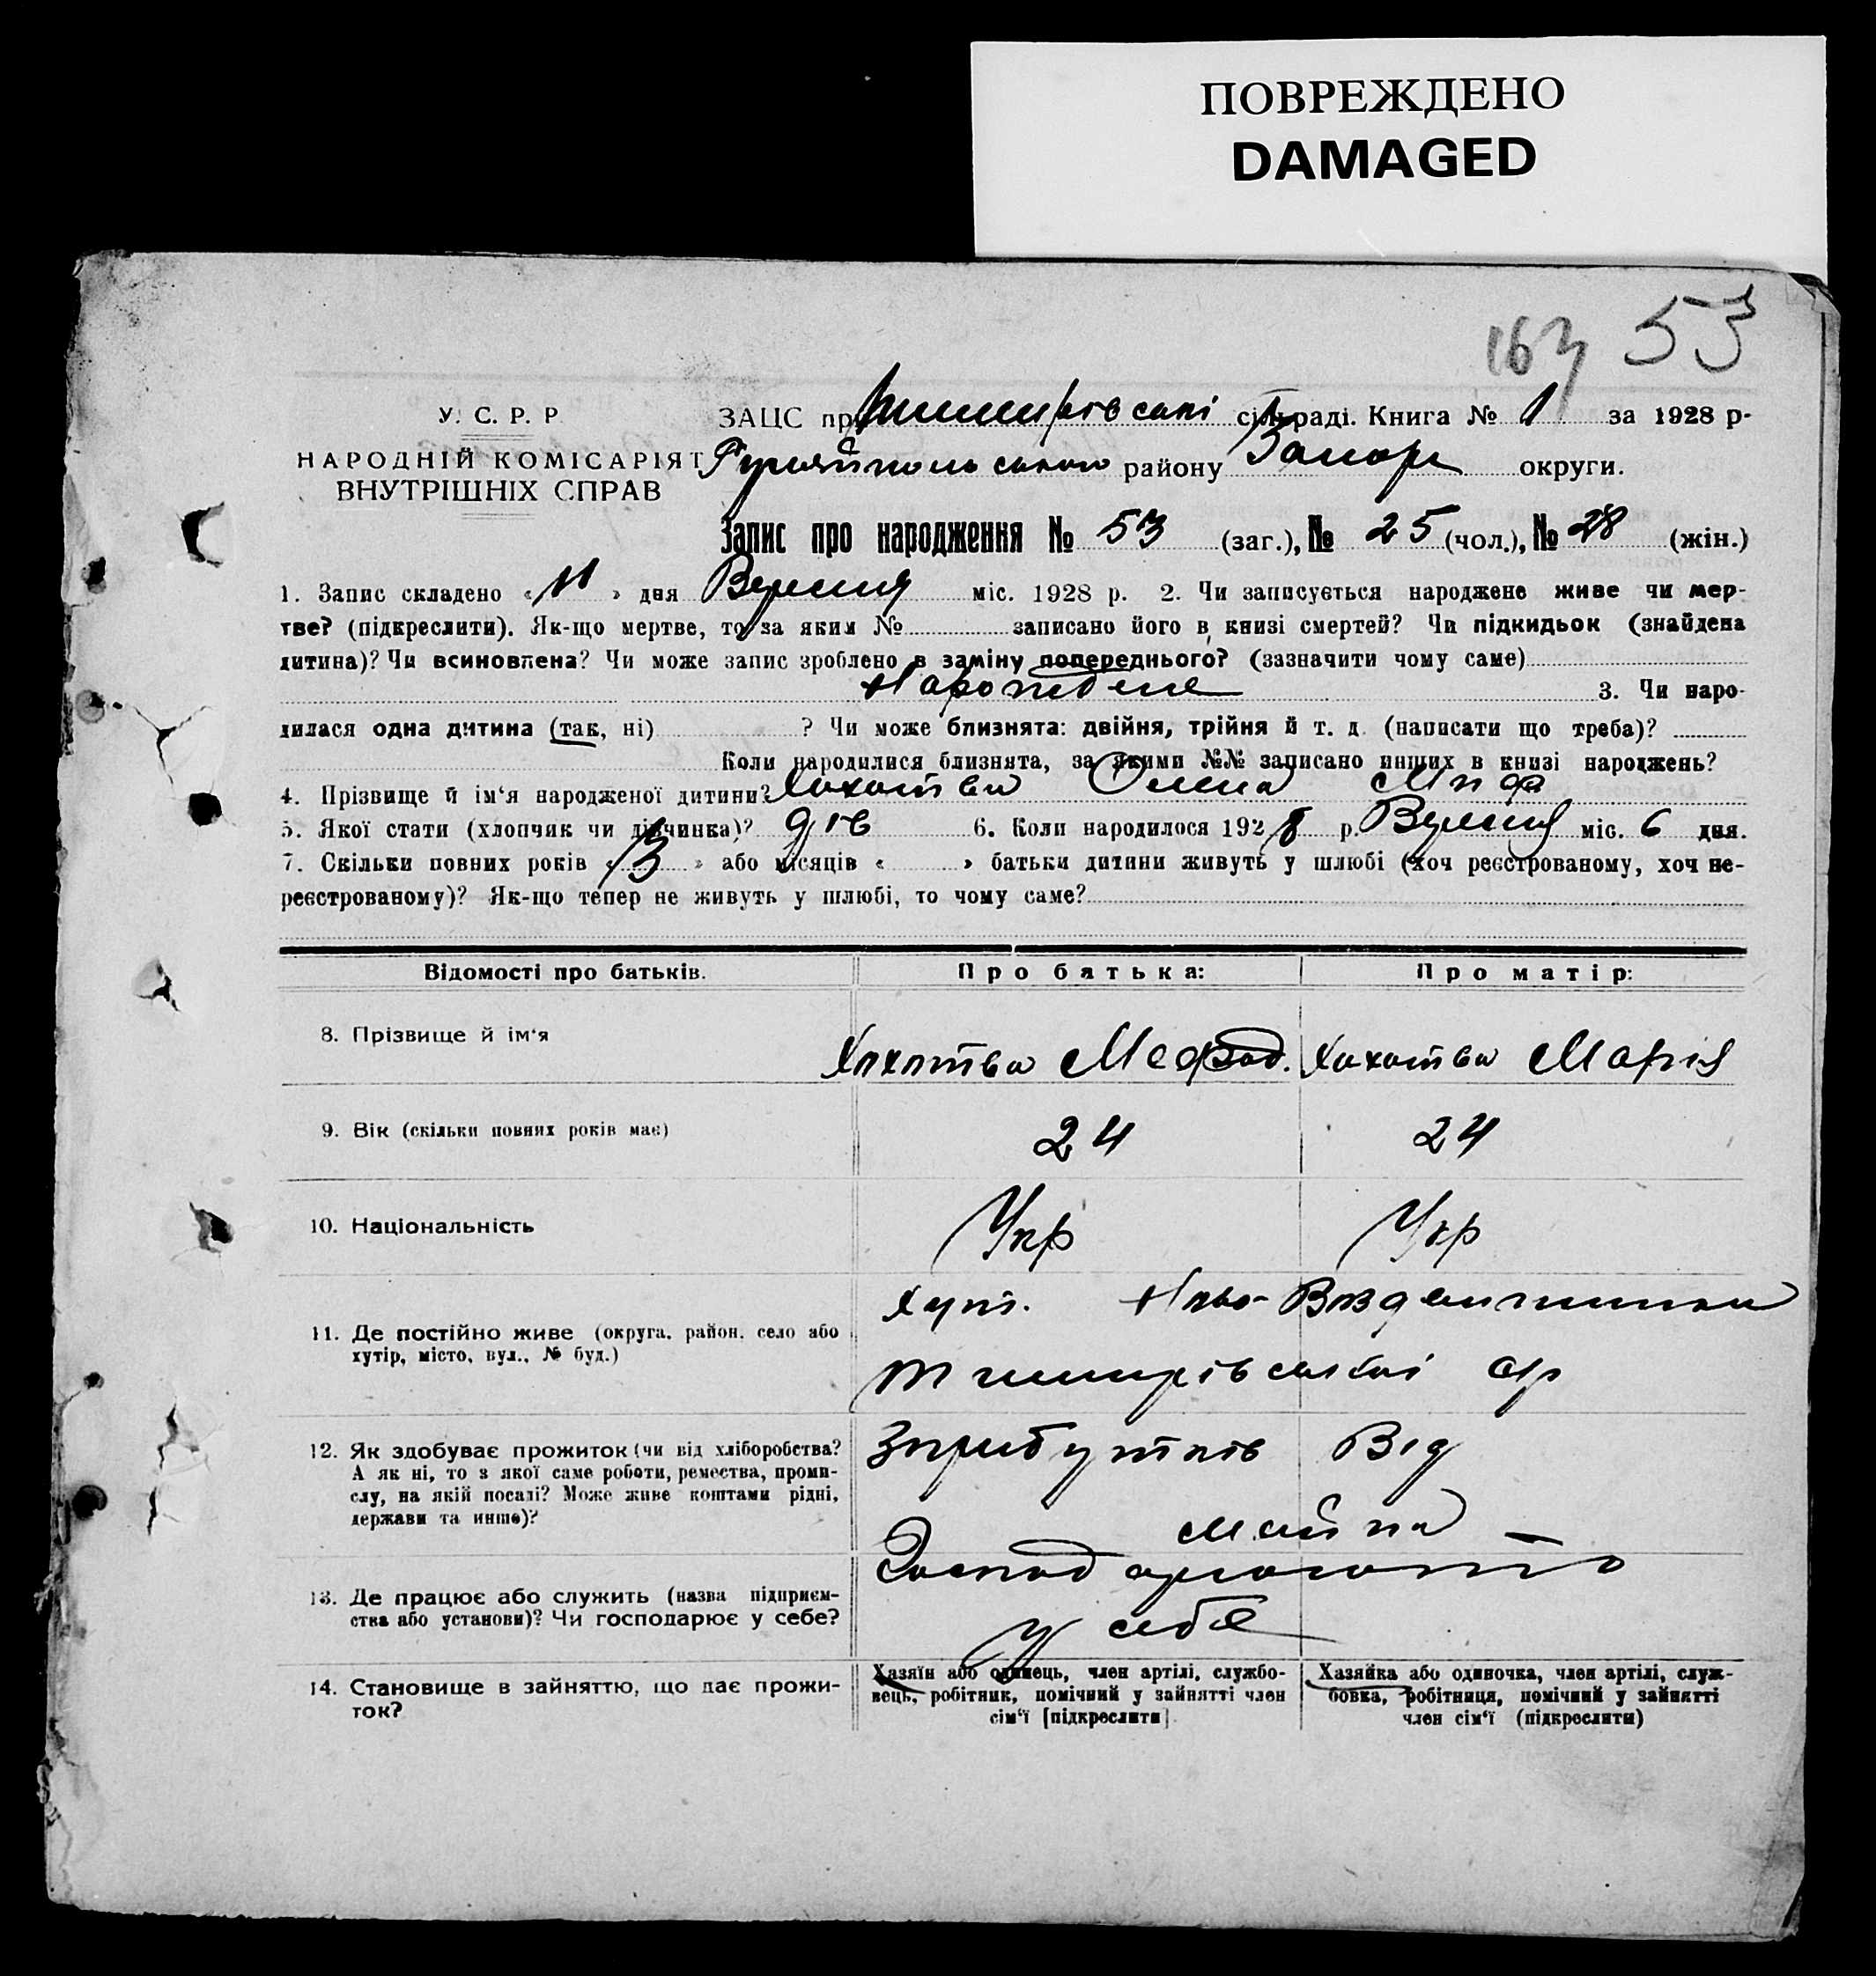 ПОВРЕЖДЕНО
DAMAGED
163 53
У. С. Р. Р.
НАРОДНІЙ КОМІСАРІЯТ
ВНУТРІШНІХ СПРАВ
ЗАЦС при сільраді. Книга № 1 за 1928 р.
Гуляйпольського району Запоріз округи.
Запис про народження № 53 (заг.), № 25 (чол.), № 28 (жін.)
1. Запис складено « 11 » дня Вересня міс. 1928 р. 2. Чи записується народжене живе чи мер-
тве? (підкреслити). Як-що мертве, то за яким № записано його в книзі смертей? Чи підкидьок (знайдена
дитина)? Чи всиновлена? Чи може запис зроблено в заміну попереднього? (зазначити чому саме)
3. Чи наро-
дилася одна дитина (так, ні) ? Чи може близнята: двійня, трійня й т. д. (написати що треба)?
Коли народилися близнята, за якими №№ записано инших в книзі народжень?
4. Прізвище й ім‘я народженої дитини? Хохотва
5. Якої стати (хлопчик чи дівчинка)? дів 6. Коли народилося 1928 р. Вересня міс. 6 дня.
7. Скільки повних років « 3 » або місяців « » батьки дитини живуть у шлюбі (хоч реєстрованому, хоч не-
реєстрованому)? Як-що тепер не живуть у шлюбі, то чому саме?
Відомості про батьків. Про батька: Про матір:
8. Прізвище й ім‘я Хохотва Мефод. Хохотва Марія
9. Вік (скільки повних років має) 24 24
10. Національність Укр Укр
Хут. Ново-Воздвиженки
11. Де постійно живе (округа, район, село або
хутір, місто, вул., № буд.)
ср
12. Як здобуває прожиток (чи від хліборобства? Зприбутків Від
А як ні, то з якої саме роботи, ремества, проми-
слу, на якій посаді? Може живе коштами рідні,
держави та инше)? майна
13. Де працює або служить (назва підприєм-
ства або установи)? Чи господарює у себе? у себе
14. Становище в зайняттю, що дає прожи-
ток?
Хазяїн або одинець, член артілі, службо-
вець, робітник, помічний у зайнятті член
сім‘ї [підкреслити]
Хазяйка або одиночка, член артілі, служ-
бовка, робітниця, помічний у зайнятті
член сім‘ї (підкреслити)